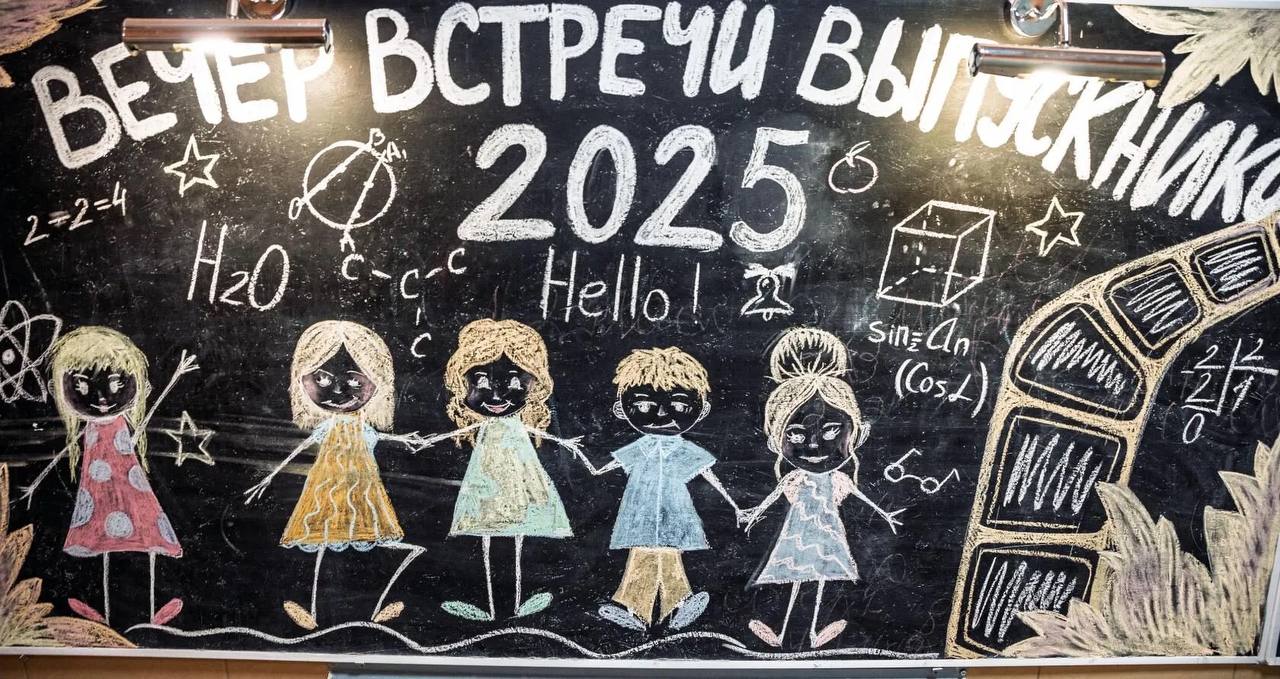 ВЕЧЕР ВСТРЕЧИ ВЫПУСКНИКО
2025
2=2=4
B
A₁
O
A
H₂O
C - C - C
C
Hello!
sin = an
(Cos,L)
2 2
2 1
0